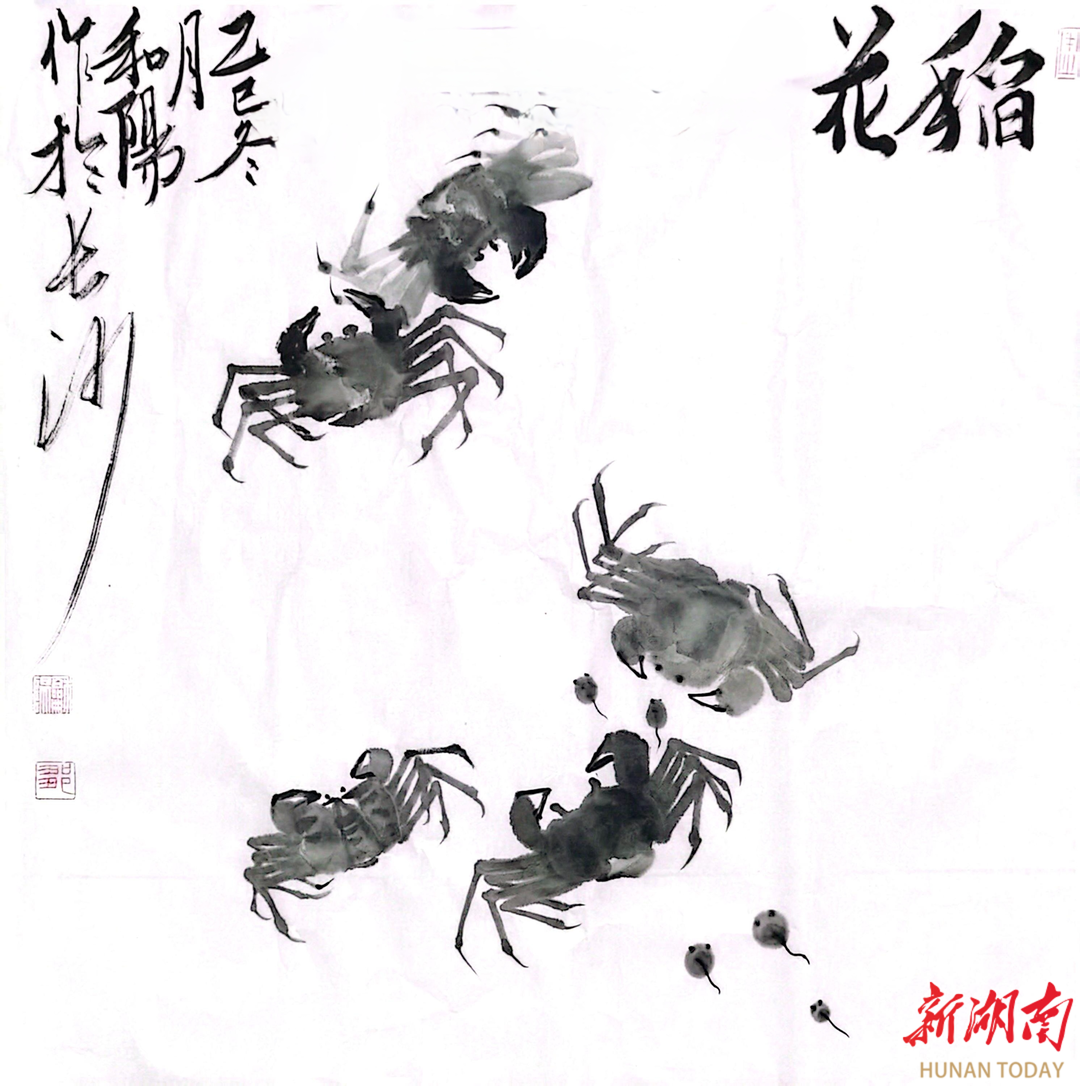 稻花
乙巳冬
月
和陽
作於长沙
新湖南
HUNAN TODAY